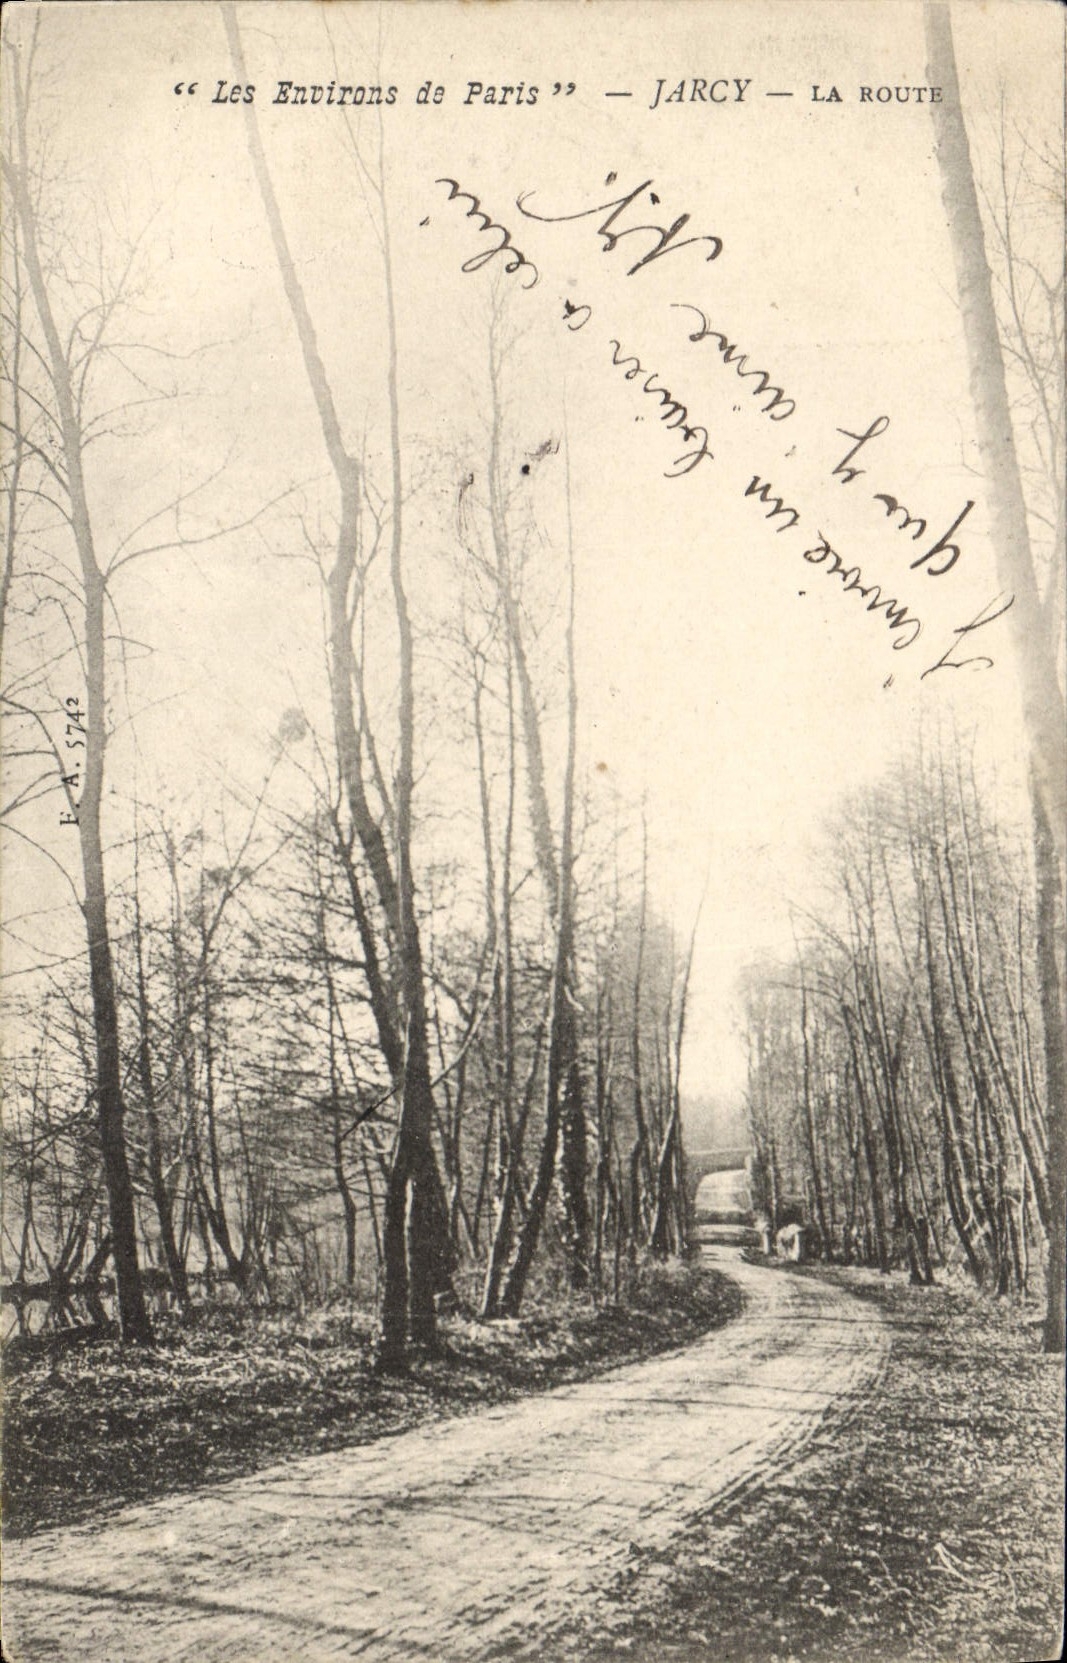 “ Les Environs de Paris ” — JARCY — LA ROUTE
J'envoie un baiser à celui
que j'aime
F. A. 5742